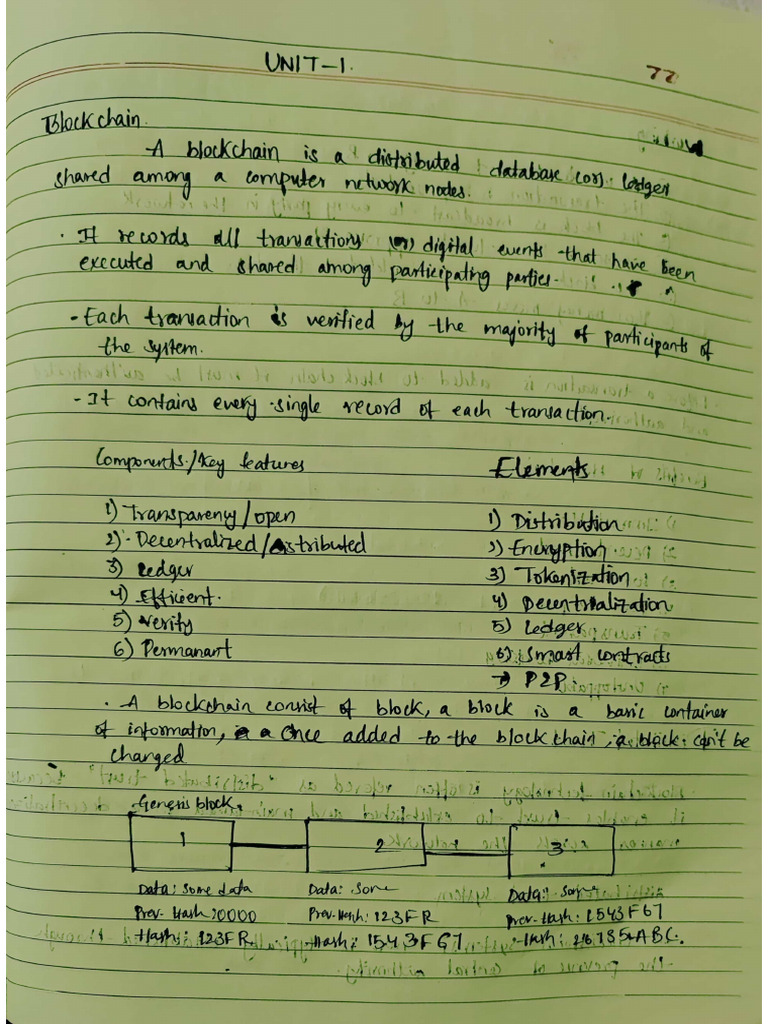 UNIT-1.
77
Blockchain.
A blockchain is a distributed database (or) ledger
shared among a computer network nodes.
. It records all transactions (or) digital events that have been
executed and shared among participating parties.
- Each transaction is verified by the majority of participants of
the system.
- It contains every single record of each transaction.
Components/Key features
1) Transparency/open
2) Decentralized/distributed
3) Ledger
4) Efficient.
5) Verify
6) Permanant
Elements
1) Distribution
2) Encryption
3) Tokenization
4) Decentrialization
5) Ledger
6) Smart contracts
→ P2P
. A blockchain consist of block, a block is a basic container
of information, Once added to the block chain, a block can't be
changed
Genesis block.
1 2 3
Data: Some data Data: Some Data: Some
Prev. Hash: 0000 Prev. Hash: 123FR Prev. Hash: 1543F67
Hash: 123FR Hash: 1543F67 Hash: